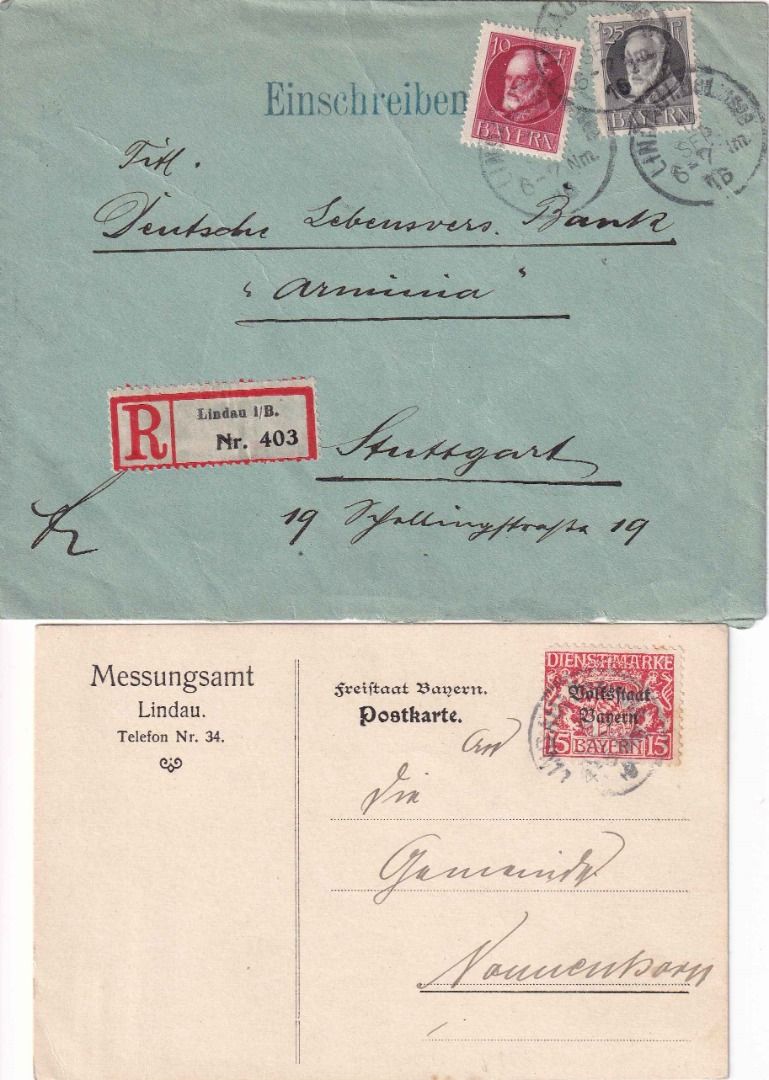 10 P
BAYERN
25 P
BAYERN
Einschreiben
6-7 Nm.
16
Titl.
Deutsche Lebensvers. Bank
"Arminia"
R
Lindau i/B.
Nr. 403
Stuttgart
19 Schellingstraße 19
Messungsamt
Lindau.
Telefon Nr. 34.
Freistaat Bayern.
Postkarte.
DIENSTMARKE
Volksstaat
Bayern
15 BAYERN 15
An
die
Gemeinde
Nonnenhorn